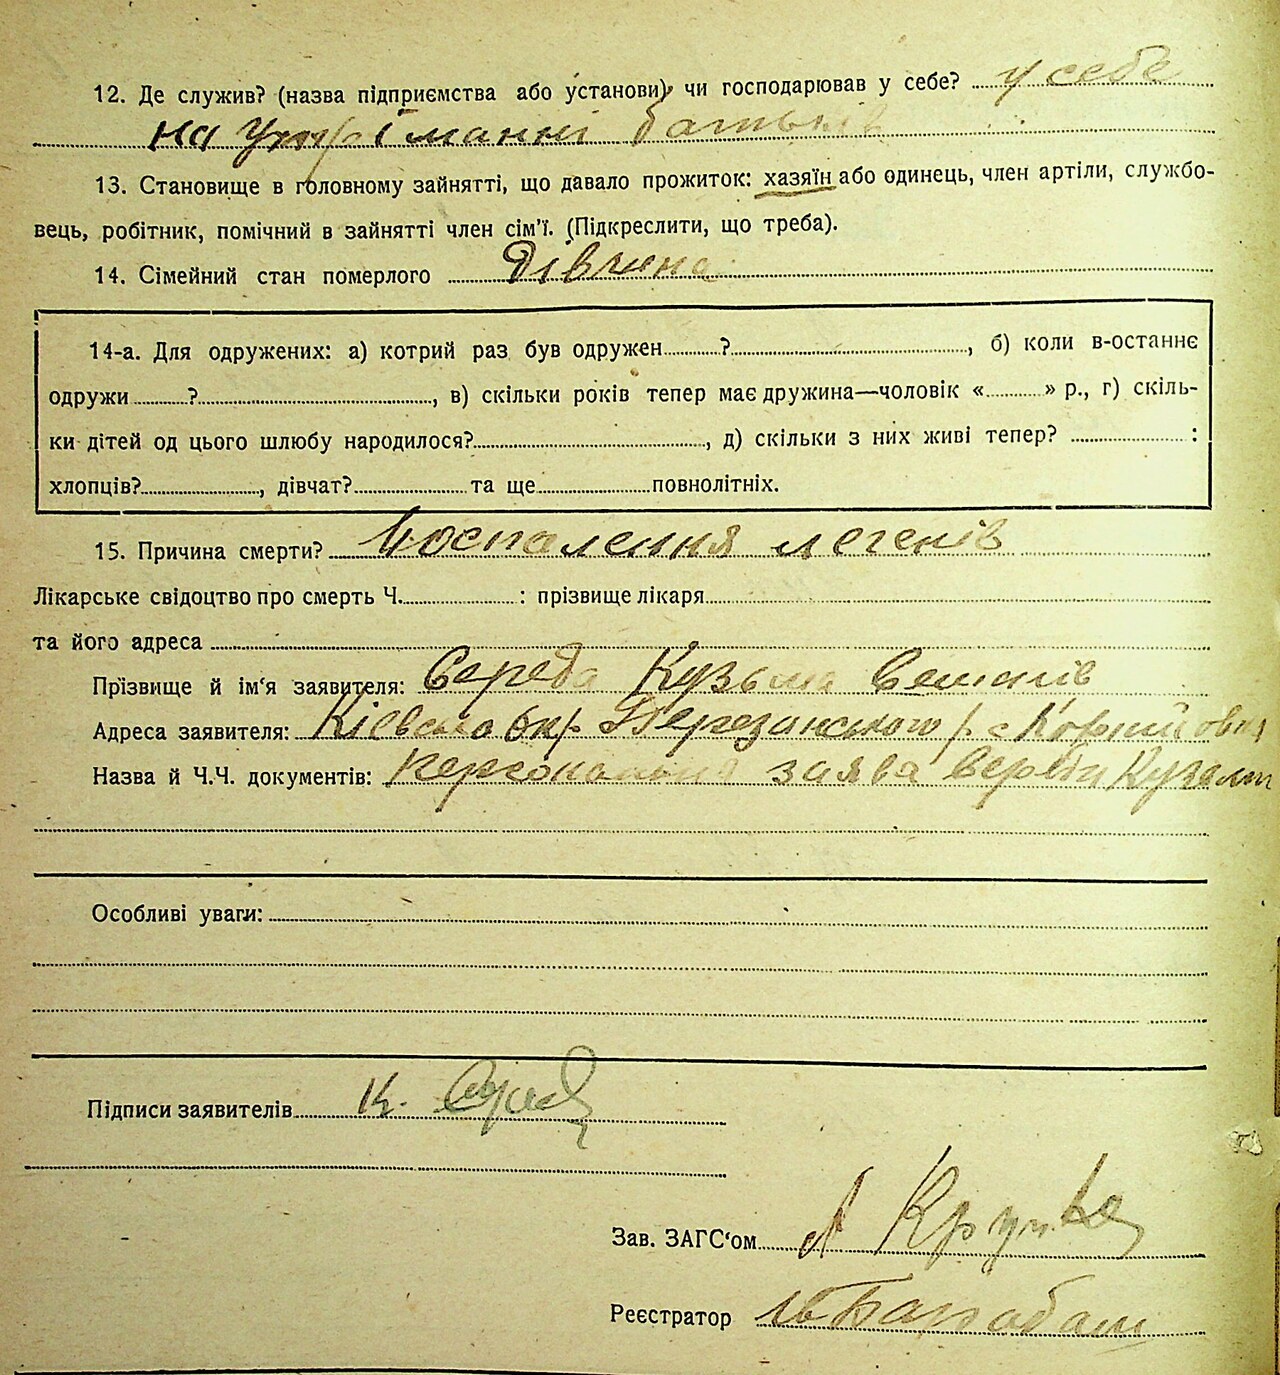 12. Де служив? (назва підприємства або установи) чи господарював у себе? у себе
на утріманні батьків
13. Становище в головному зайнятті, що давало прожиток: хазяїн або одинець, член артіли, службо-
вець, робітник, помічний в зайнятті член сім'ї. (Підкреслити, що треба).
14. Сімейний стан померлого Дівчина
14-а. Для одружених: а) котрий раз був одружен ? , б) коли в-останнє
одружи ? , в) скільки років тепер має дружина—чоловік « » р., г) скіль-
ки дітей од цього шлюбу народилося? , д) скільки з них живі тепер? :
хлопців? , дівчат? та ще повнолітніх.
15. Причина смерти? Воспалення легенів
Лікарське свідоцтво про смерть Ч. : прізвище лікаря
та його адреса
Прізвище й ім'я заявителя: Середа Кузьма
Адреса заявителя: Кіевська окр Березанського р с
Назва й Ч.Ч. документів: Персональна заява Середи Кузьми
Особливі уваги:
Підписи заявителів К. Середа
Зав. ЗАГС'ом
Реєстратор